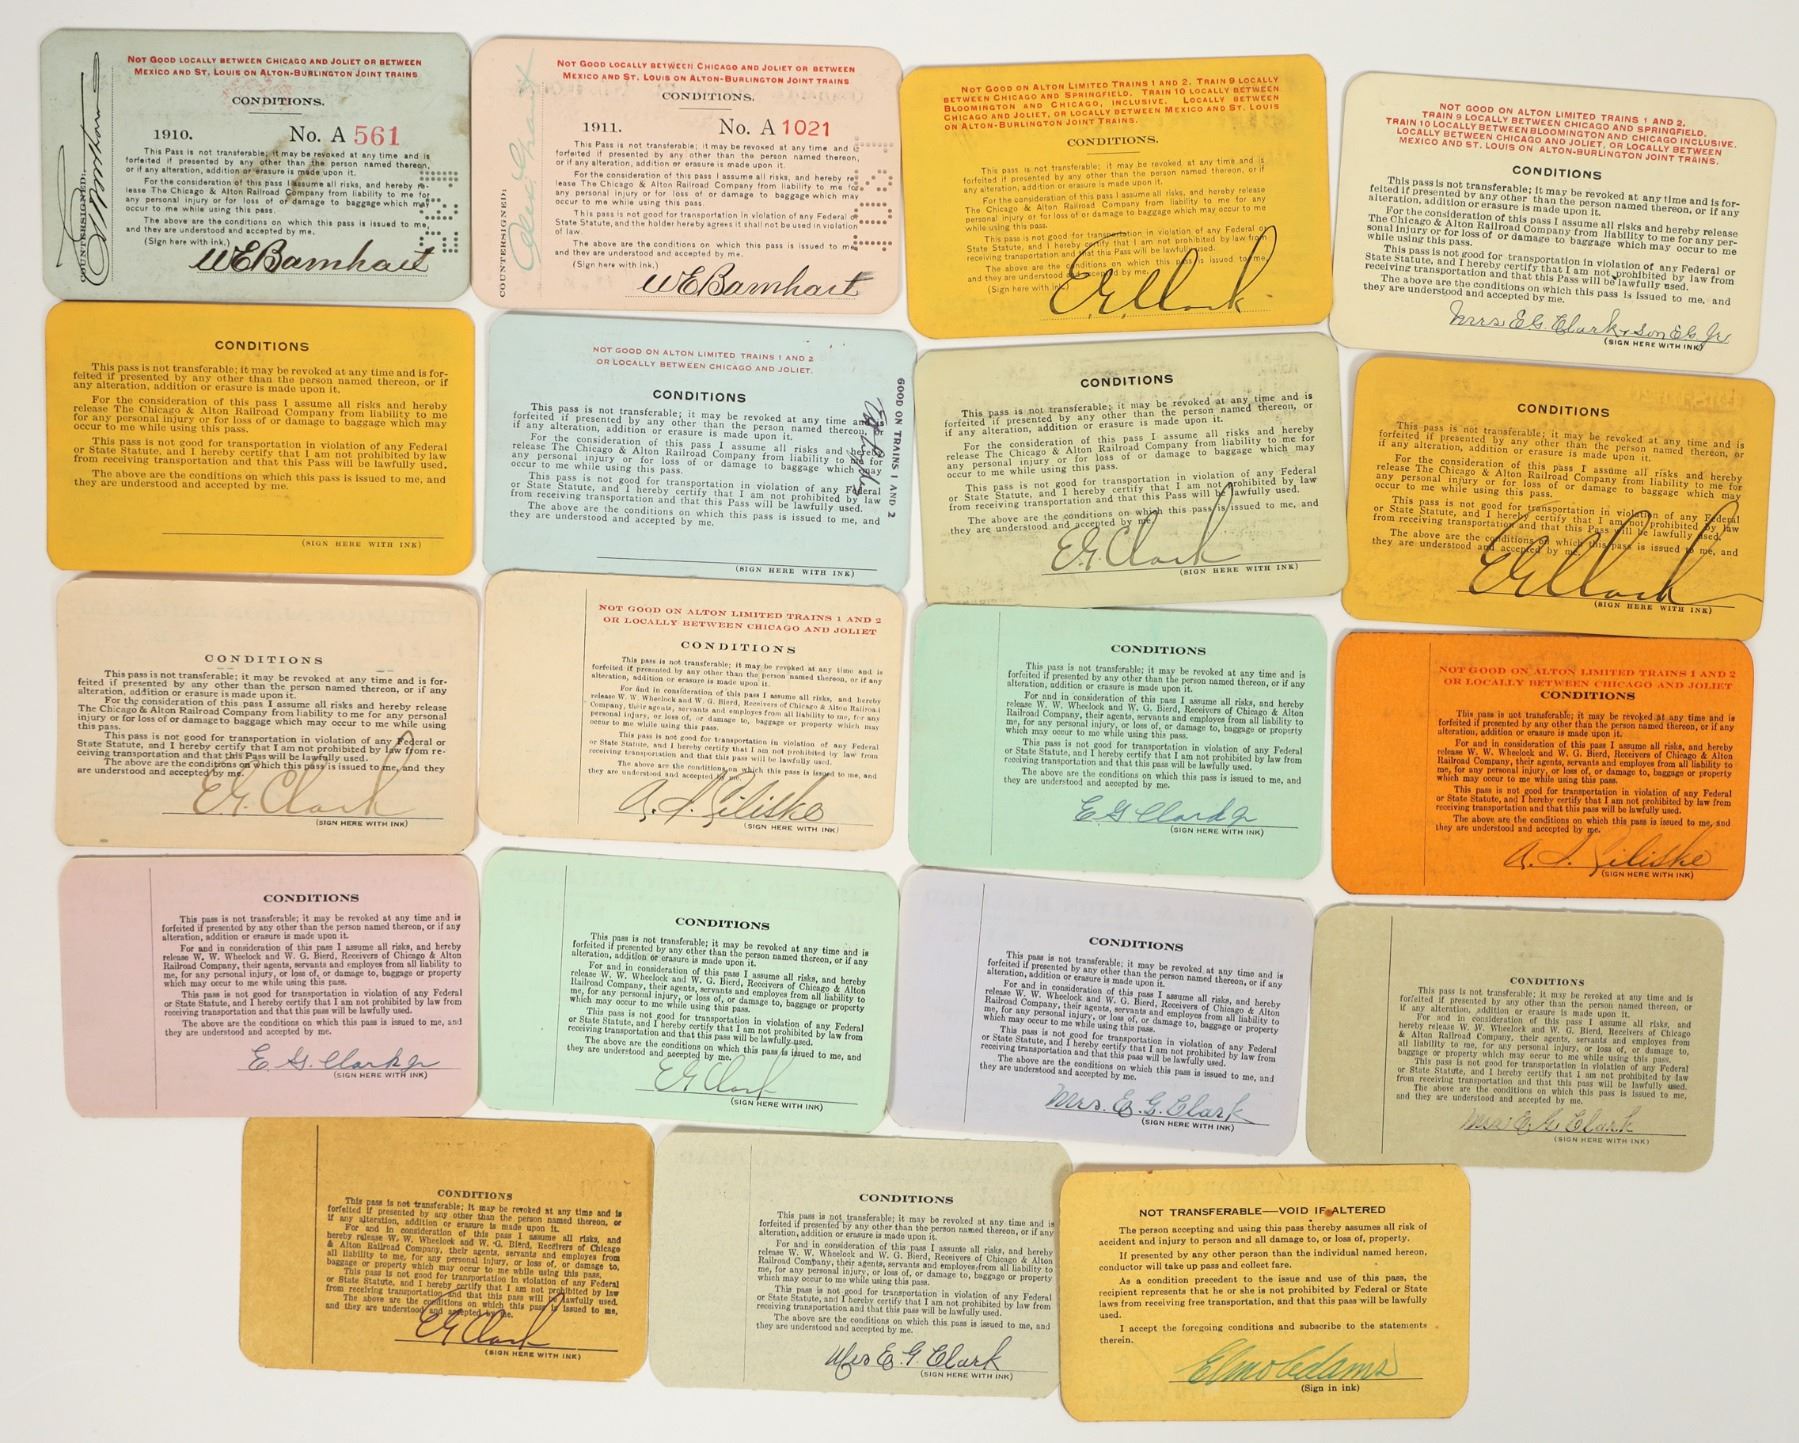 NOT GOOD LOCALLY BETWEEN CHICAGO AND JOLIET OR BETWEEN
MEXICO AND ST. LOUIS ON ALTON-BURLINGTON JOINT TRAINS
CONDITIONS.
1910. No. A 561
This Pass is not transferable; it may be revoked at any time and is
forfeited if presented by any other than the person named thereon,
or if any alteration, addition or erasure is made upon it.
For the consideration of this pass I assume all risks, and hereby re-
lease The Chicago & Alton Railroad Company from liability to me for
any personal injury or for loss of or damage to baggage which may
occur to me while using this pass.
The above are the conditions on which this pass is issued to me,
and they are understood and accepted by me.
(Sign here with ink.)
WEBarnhart
COUNTERSIGNED:
NOT GOOD LOCALLY BETWEEN CHICAGO AND JOLIET OR BETWEEN
MEXICO AND ST. LOUIS ON ALTON-BURLINGTON JOINT TRAINS
CONDITIONS.
1911. No. A 1021
This Pass is not transferable; it may be revoked at any time and is
forfeited if presented by any other than the person named thereon,
or if any alteration, addition or erasure is made upon it.
For the consideration of this pass I assume all risks, and hereby re-
lease The Chicago & Alton Railroad Company from liability to me for
any personal injury or for loss of or damage to baggage which may
occur to me while using this pass.
This pass is not good for transportation in violation of any Federal or
State Statute, and the holder hereby agrees it shall not be used in violation
of law.
The above are the conditions on which this pass is issued to me,
and they are understood and accepted by me.
(Sign here with ink.)
WEBarnhart
COUNTERSIGNED:
NOT GOOD ON ALTON LIMITED TRAINS 1 AND 2, TRAIN 9 LOCALLY
BETWEEN CHICAGO AND SPRINGFIELD. TRAIN 10 LOCALLY BETWEEN
BLOOMINGTON AND CHICAGO, INCLUSIVE. LOCALLY BETWEEN
CHICAGO AND JOLIET, OR LOCALLY BETWEEN MEXICO AND ST. LOUIS
ON ALTON-BURLINGTON JOINT TRAINS.
CONDITIONS.
This pass is not transferable; it may be revoked at any time and is
forfeited if presented by any other than the person named thereon, or if
any alteration, addition or erasure is made upon it.
For the consideration of this pass I assume all risks, and hereby release
The Chicago & Alton Railroad Company from liability to me for any
personal injury or for loss of or damage to baggage which may occur to me
while using this pass.
This pass is not good for transportation in violation of any Federal or
State Statute, and I hereby certify that I am not prohibited by law from
receiving transportation and that this Pass will be lawfully used.
The above are the conditions on which this pass is issued to me,
and they are understood and accepted by me.
(Sign here with ink)
E.G. Clark
NOT GOOD ON ALTON LIMITED TRAINS 1 AND 2.
TRAIN 9 LOCALLY BETWEEN CHICAGO AND SPRINGFIELD.
TRAIN 10 LOCALLY BETWEEN BLOOMINGTON AND CHICAGO INCLUSIVE.
LOCALLY BETWEEN CHICAGO AND JOLIET, OR LOCALLY BETWEEN
MEXICO AND ST. LOUIS ON ALTON-BURLINGTON JOINT TRAINS.
CONDITIONS
This pass is not transferable; it may be revoked at any time and is for-
feited if presented by any other than the person named thereon, or if any
alteration, addition or erasure is made upon it.
For the consideration of this pass I assume all risks and hereby release
The Chicago & Alton Railroad Company from liability to me for any per-
sonal injury or for loss of or damage to baggage which may occur to me
while using this pass.
This pass is not good for transportation in violation of any Federal or
State Statute, and I hereby certify that I am not prohibited by law from
receiving transportation and that this Pass will be lawfully used.
The above are the conditions on which this pass is issued to me, and
they are understood and accepted by me.
Mrs. E.G. Clark & son E.G. Jr
(SIGN HERE WITH INK)
CONDITIONS
This pass is not transferable; it may be revoked at any time and is for-
feited if presented by any other than the person named thereon, or if
any alteration, addition or erasure is made upon it.
For the consideration of this pass I assume all risks and hereby
release The Chicago & Alton Railroad Company from liability to me
for any personal injury or for loss of or damage to baggage which may
occur to me while using this pass.
This pass is not good for transportation in violation of any Federal
or State Statute, and I hereby certify that I am not prohibited by law
from receiving transportation and that this Pass will be lawfully used.
The above are the conditions on which this pass is issued to me, and
they are understood and accepted by me.
(SIGN HERE WITH INK)
NOT GOOD ON ALTON LIMITED TRAINS 1 AND 2
OR LOCALLY BETWEEN CHICAGO AND JOLIET.
CONDITIONS
This pass is not transferable; it may be revoked at any time and is
forfeited if presented by any other than the person named thereon, or
if any alteration, addition or erasure is made upon it.
For the consideration of this pass I assume all risks and hereby
release The Chicago & Alton Railroad Company from liability to me for
any personal injury or for loss of or damage to baggage which may
occur to me while using this pass.
This pass is not good for transportation in violation of any Federal
or State Statute, and I hereby certify that I am not prohibited by law
from receiving transportation and that this Pass will be lawfully used.
The above are the conditions on which this pass is issued to me, and
they are understood and accepted by me.
(SIGN HERE WITH INK)
GOOD ON TRAINS 1 AND 2
CONDITIONS
This pass is not transferable; it may be revoked at any time and is
forfeited if presented by any other than the person named thereon, or
if any alteration, addition or erasure is made upon it.
For the consideration of this pass I assume all risks and hereby
release The Chicago & Alton Railroad Company from liability to me for
any personal injury or for loss of or damage to baggage which may
occur to me while using this pass.
This pass is not good for transportation in violation of any Federal
or State Statute, and I hereby certify that I am not prohibited by law
from receiving transportation and that this Pass will be lawfully used.
The above are the conditions on which this pass is issued to me, and
they are understood and accepted by me.
E.G. Clark
(SIGN HERE WITH INK)
CONDITIONS
This pass is not transferable; it may be revoked at any time and is
forfeited if presented by any other than the person named thereon, or
if any alteration, addition or erasure is made upon it.
For the consideration of this pass I assume all risks and hereby
release The Chicago & Alton Railroad Company from liability to me for
any personal injury or for loss of or damage to baggage which may
occur to me while using this pass.
This pass is not good for transportation in violation of any Federal
or State Statute, and I hereby certify that I am not prohibited by law
from receiving transportation and that this Pass will be lawfully used.
The above are the conditions on which this pass is issued to me, and
they are understood and accepted by me.
E.G. Clark
(SIGN HERE WITH INK)
CONDITIONS
This pass is not transferable; it may be revoked at any time and is for-
feited if presented by any other than the person named thereon, or if any
alteration, addition or erasure is made upon it.
For the consideration of this pass I assume all risks and hereby release
The Chicago & Alton Railroad Company from liability to me for any personal
injury or for loss of or damage to baggage which may occur to me while using
this pass.
This pass is not good for transportation in violation of any Federal or
State Statute, and I hereby certify that I am not prohibited by law from re-
ceiving transportation and that this Pass will be lawfully used.
The above are the conditions on which this pass is issued to me, and they
are understood and accepted by me.
E.G. Clark
(SIGN HERE WITH INK)
NOT GOOD ON ALTON LIMITED TRAINS 1 AND 2
OR LOCALLY BETWEEN CHICAGO AND JOLIET
CONDITIONS
This pass is not transferable; it may be revoked at any time and is
forfeited if presented by any other than the person named thereon, or if any
alteration, addition or erasure is made upon it.
For and in consideration of this pass I assume all risks, and hereby
release W. W. Wheelock and W. G. Bierd, Receivers of Chicago & Alton Railroad
Company, their agents, servants and employes from all liability to me, for any
personal injury, or loss of, or damage to, baggage or property which may
occur to me while using this pass.
This pass is not good for transportation in violation of any Federal
or State Statute, and I hereby certify that I am not prohibited by law from
receiving transportation and that this pass will be lawfully used.
The above are the conditions on which this pass is issued to me, and
they are understood and accepted by me.
A. L. Ziliske
(SIGN HERE WITH INK)
CONDITIONS
This pass is not transferable; it may be revoked at any time and is
forfeited if presented by any other than the person named thereon, or if any
alteration, addition or erasure is made upon it.
For and in consideration of this pass I assume all risks, and hereby
release W. W. Wheelock and W. G. Bierd, Receivers of Chicago & Alton
Railroad Company, their agents, servants and employes from all liability to
me, for any personal injury, or loss of, or damage to, baggage or property
which may occur to me while using this pass.
This pass is not good for transportation in violation of any Federal
or State Statute, and I hereby certify that I am not prohibited by law from
receiving transportation and that this pass will be lawfully used.
The above are the conditions on which this pass is issued to me, and
they are understood and accepted by me.
E G Clark Jr
(SIGN HERE WITH INK)
NOT GOOD ON ALTON LIMITED TRAINS 1 AND 2
OR LOCALLY BETWEEN CHICAGO AND JOLIET
CONDITIONS
This pass is not transferable; it may be revoked at any time and is
forfeited if presented by any other than the person named thereon, or if any
alteration, addition or erasure is made upon it.
For and in consideration of this pass I assume all risks, and hereby
release W. W. Wheelock and W. G. Bierd, Receivers of Chicago & Alton
Railroad Company, their agents, servants and employes from all liability to
me, for any personal injury, or loss of, or damage to, baggage or property
which may occur to me while using this pass.
This pass is not good for transportation in violation of any Federal
or State Statute, and I hereby certify that I am not prohibited by law from
receiving transportation and that this pass will be lawfully used.
The above are the conditions on which this pass is issued to me, and
they are understood and accepted by me.
A. L. Ziliske
(SIGN HERE WITH INK)
CONDITIONS
This pass is not transferable; it may be revoked at any time and is
forfeited if presented by any other than the person named thereon, or if any
alteration, addition or erasure is made upon it.
For and in consideration of this pass I assume all risks, and hereby
release W. W. Wheelock and W. G. Bierd, Receivers of Chicago & Alton
Railroad Company, their agents, servants and employes from all liability to
me, for any personal injury, or loss of, or damage to, baggage or property
which may occur to me while using this pass.
This pass is not good for transportation in violation of any Federal
or State Statute, and I hereby certify that I am not prohibited by law from
receiving transportation and that this pass will be lawfully used.
The above are the conditions on which this pass is issued to me, and
they are understood and accepted by me.
E. G. Clark Jr
(SIGN HERE WITH INK)
CONDITIONS
This pass is not transferable; it may be revoked at any time and is
forfeited if presented by any other than the person named thereon, or if any
alteration, addition or erasure is made upon it.
For and in consideration of this pass I assume all risks, and hereby
release W. W. Wheelock and W. G. Bierd, Receivers of Chicago & Alton
Railroad Company, their agents, servants and employes from all liability to
me, for any personal injury, or loss of, or damage to, baggage or property
which may occur to me while using this pass.
This pass is not good for transportation in violation of any Federal
or State Statute, and I hereby certify that I am not prohibited by law from
receiving transportation and that this pass will be lawfully used.
The above are the conditions on which this pass is issued to me, and
they are understood and accepted by me.
E G Clark
(SIGN HERE WITH INK)
CONDITIONS
This pass is not transferable; it may be revoked at any time and is
forfeited if presented by any other than the person named thereon, or if any
alteration, addition or erasure is made upon it.
For and in consideration of this pass I assume all risks, and hereby
release W. W. Wheelock and W. G. Bierd, Receivers of Chicago & Alton
Railroad Company, their agents, servants and employes from all liability to
me, for any personal injury, or loss of, or damage to, baggage or property
which may occur to me while using this pass.
This pass is not good for transportation in violation of any Federal
or State Statute, and I hereby certify that I am not prohibited by law from
receiving transportation and that this pass will be lawfully used.
The above are the conditions on which this pass is issued to me, and
they are understood and accepted by me.
Mrs. E. G. Clark
(SIGN HERE WITH INK)
CONDITIONS
This pass is not transferable; it may be revoked at any time and is
forfeited if presented by any other than the person named thereon, or
if any alteration, addition or erasure is made upon it.
For and in consideration of this pass I assume all risks, and
hereby release W. W. Wheelock and W. G. Bierd, Receivers of Chicago
& Alton Railroad Company, their agents, servants and employes from
all liability to me, for any personal injury, or loss of, or damage to,
baggage or property which may occur to me while using this pass.
This pass is not good for transportation in violation of any Federal
or State Statute, and I hereby certify that I am not prohibited by law
from receiving transportation and that this pass will be lawfully used.
The above are the conditions on which this pass is issued to me,
and they are understood and accepted by me.
Mrs. E. G. Clark
(SIGN HERE WITH INK)
CONDITIONS
This pass is not transferable; it may be revoked at any time and is
forfeited if presented by any other than the person named thereon, or
if any alteration, addition or erasure is made upon it.
For and in consideration of this pass I assume all risks, and
hereby release W. W. Wheelock and W. G. Bierd, Receivers of Chicago
& Alton Railroad Company, their agents, servants and employes from
all liability to me, for any personal injury, or loss of, or damage to,
baggage or property which may occur to me while using this pass.
This pass is not good for transportation in violation of any Federal
or State Statute, and I hereby certify that I am not prohibited by law
from receiving transportation and that this pass will be lawfully used.
The above are the conditions on which this pass is issued to me,
and they are understood and accepted by me.
E G Clark
(SIGN HERE WITH INK)
CONDITIONS
This pass is not transferable; it may be revoked at any time and is
forfeited if presented by any other than the person named thereon, or if any
alteration, addition or erasure is made upon it.
For and in consideration of this pass I assume all risks, and hereby
release W. W. Wheelock and W. G. Bierd, Receivers of Chicago & Alton
Railroad Company, their agents, servants and employes from all liability to
me, for any personal injury, or loss of, or damage to, baggage or property
which may occur to me while using this pass.
This pass is not good for transportation in violation of any Federal
or State Statute, and I hereby certify that I am not prohibited by law from
receiving transportation and that this pass will be lawfully used.
The above are the conditions on which this pass is issued to me, and
they are understood and accepted by me.
Mrs E. G. Clark
(SIGN HERE WITH INK)
NOT TRANSFERABLE—VOID IF ALTERED
The person accepting and using this pass thereby assumes all risk of
accident and injury to person and all damage to, or loss of, property.
If presented by any other person than the individual named hereon,
conductor will take up pass and collect fare.
As a condition precedent to the issue and use of this pass, the
recipient represents that he or she is not prohibited by Federal or State
laws from receiving free transportation, and that this pass will be lawfully
used.
I accept the foregoing conditions and subscribe to the statements
therein.
Elmo Adams
(Sign in ink)